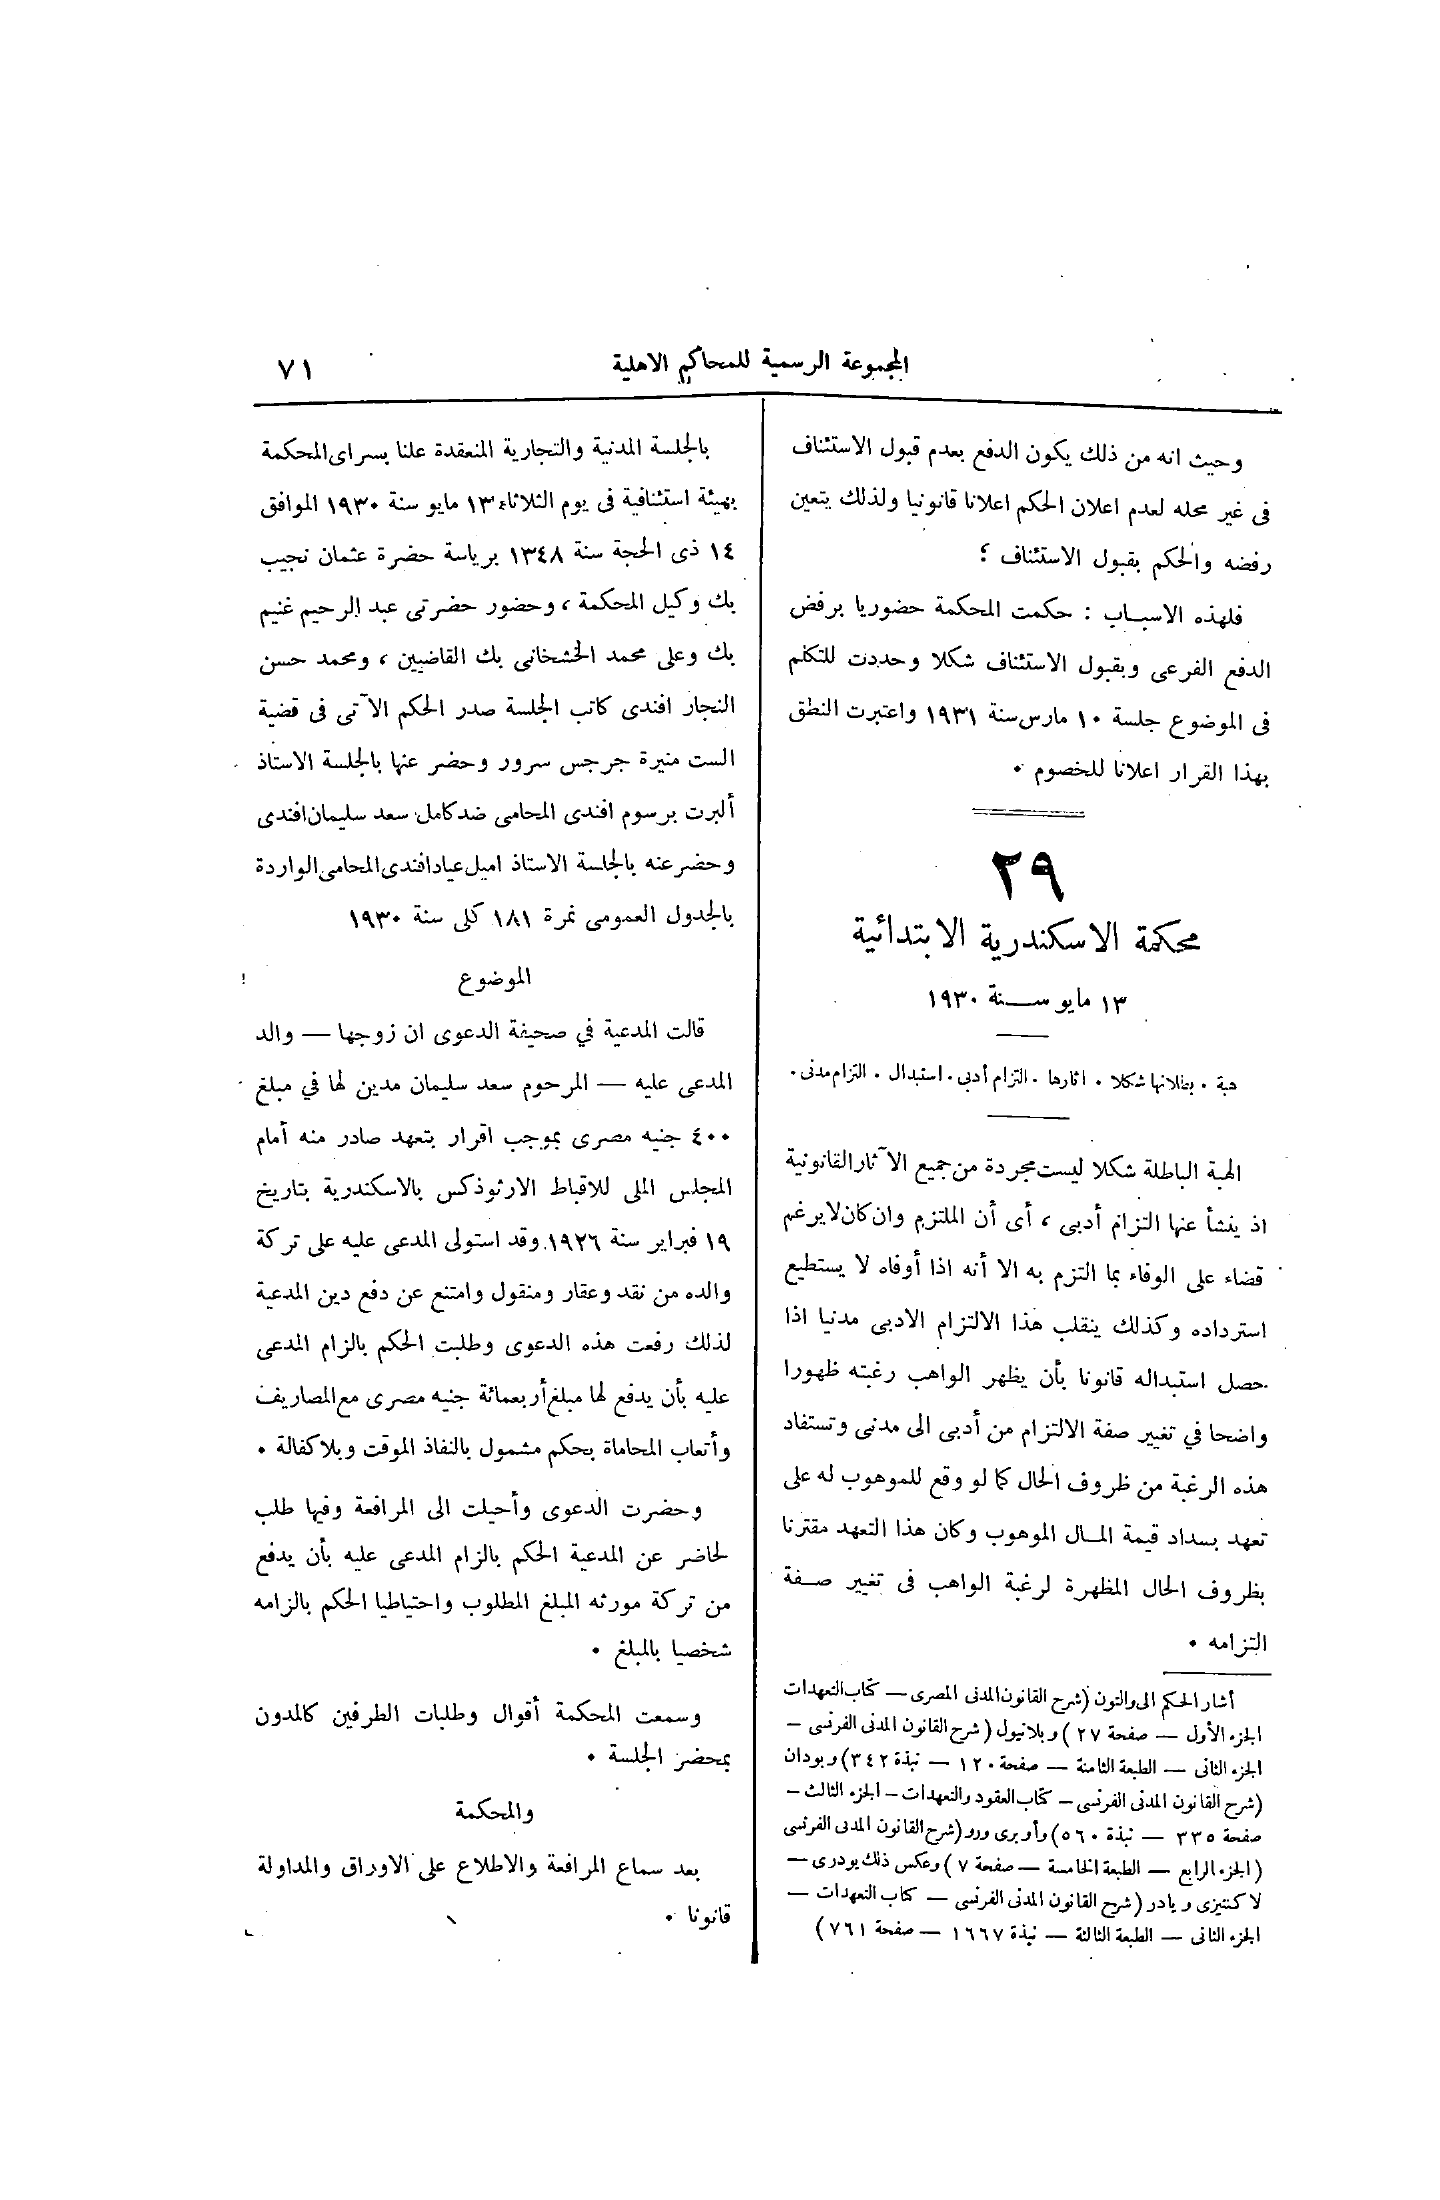 المجموعة الرسمية للمحاكم الاهلية
٧١
وحيث انه من ذلك يكون الدفع بعدم قبول الاستئناف
فى غير محله لعدم اعلان الحكم اعلانا قانونيا ولذلك يتعين
رفضه والحكم بقبول الاستئناف ؟
فلهذه الاسباب : حكمت المحكمة حضوريا برفض
الدفع الفرعى وبقبول الاستئناف شكلا وحددت للتكلم
فى الموضوع جلسة ١٠ مارس سنة ١٩٣١ واعتبرت النطق
بهذا القرار اعلانا للخصوم .
٢٩
محكمة الاسكندرية الابتدائية
١٣ مايو سنة ١٩٣٠
هبة . بطلانها شكلا . اثارها . التزام أدبى . استبدال . التزام مدنى .
الهبة الباطلة شكلا ليست مجردة من جميع الآثار القانونية
اذ ينشأ عنها التزام أدبى ، أى أن الملتزم وان كان لا يرغم
قضاء على الوفاء بما التزم به الا أنه اذا أوفاه لا يستطيع
استرداده وكذلك ينقلب هذا الالتزام الادبى مدنيا اذا
حصل استبداله قانونا بأن يظهر الواهب رغبته ظهورا
واضحا في تغيير صفة الالتزام من أدبى الى مدنى وتستفاد
هذه الرغبة من ظروف الحال كما لو وقع للموهوب له على
تعهد بسداد قيمة المال الموهوب وكان هذا التعهد مقترنا
بظروف الحال المظهرة لرغبة الواهب فى تغيير صفة
التزامه .
أشار الحكم الى والتون (شرح القانون المدنى المصرى — كتاب التعهدات
الجزء الأول — صفحة ٢٧) وبلانيول (شرح القانون المدنى الفرنسى —
الجزء الثانى — الطبعة الثامنة — صفحة ١٢٠ — نبذة ٣٤٢) وبودان
(شرح القانون المدنى الفرنسى — كتاب العقود والتعهدات — الجزء الثالث —
صفحة ٣٣٥ — نبذة ٥٦٠) وأوبرى ورو (شرح القانون المدنى الفرنسى
(الجزء الرابع — الطبعة الخامسة — صفحة ٧) وعكس ذلك بودرى —
لاكنتيزى وبادر (شرح القانون المدنى الفرنسى — كتاب التعهدات —
الجزء الثانى — الطبعة الثالثة — نبذة ١٦٦٧ — صفحة ٧٦١)
بالجلسة المدنية والتجارية المنعقدة علنا بسراى المحكمة
بهيئة استئنافية فى يوم الثلاثاء ١٣ مايو سنة ١٩٣٠ الموافق
١٤ ذى الحجة سنة ١٣٤٨ برياسة حضرة عثمان نجيب
بك وكيل المحكمة ، وحضور حضرتى عبد الرحيم غنيم
بك وعلى محمد الخشخانى بك القاضيين ، ومحمد حسن
النجار افندى كاتب الجلسة صدر الحكم الآتى فى قضية
الست منيرة جرجس سرور وحضر عنها بالجلسة الاستاذ
ألبرت برسوم افندى المحامى ضد كامل سعد سليمان افندى
وحضر عنه بالجلسة الاستاذ اميل عياد افندى المحامى الواردة
بالجدول العمومى نمرة ١٨١ كلى سنة ١٩٣٠
الموضوع
قالت المدعية في صحيفة الدعوى ان زوجها — والد
المدعى عليه — المرحوم سعد سليمان مدين لها في مبلغ
٤٠٠ جنيه مصرى بموجب اقرار بتعهد صادر منه أمام
المجلس الملى للاقباط الارثوذكس بالاسكندرية بتاريخ
١٩ فبراير سنة ١٩٢٦ وقد استولى المدعى عليه على تركة
والده من نقد وعقار ومنقول وامتنع عن دفع دين المدعية
لذلك رفعت هذه الدعوى وطلبت الحكم بالزام المدعى
عليه بأن يدفع لها مبلغ أربعمائة جنيه مصرى مع المصاريف
وأتعاب المحاماة بحكم مشمول بالنفاذ الموقت وبلا كفالة .
وحضرت الدعوى وأحيلت الى المرافعة وفيها طلب
لحاضر عن المدعية الحكم بالزام المدعى عليه بأن يدفع
من تركة مورثه المبلغ المطلوب واحتياطيا الحكم بالزامه
شخصيا بالمبلغ .
وسمعت المحكمة أقوال وطلبات الطرفين كالمدون
بمحضر الجلسة .
والمحكمة
بعد سماع المرافعة والاطلاع على الاوراق والمداولة
قانونا .